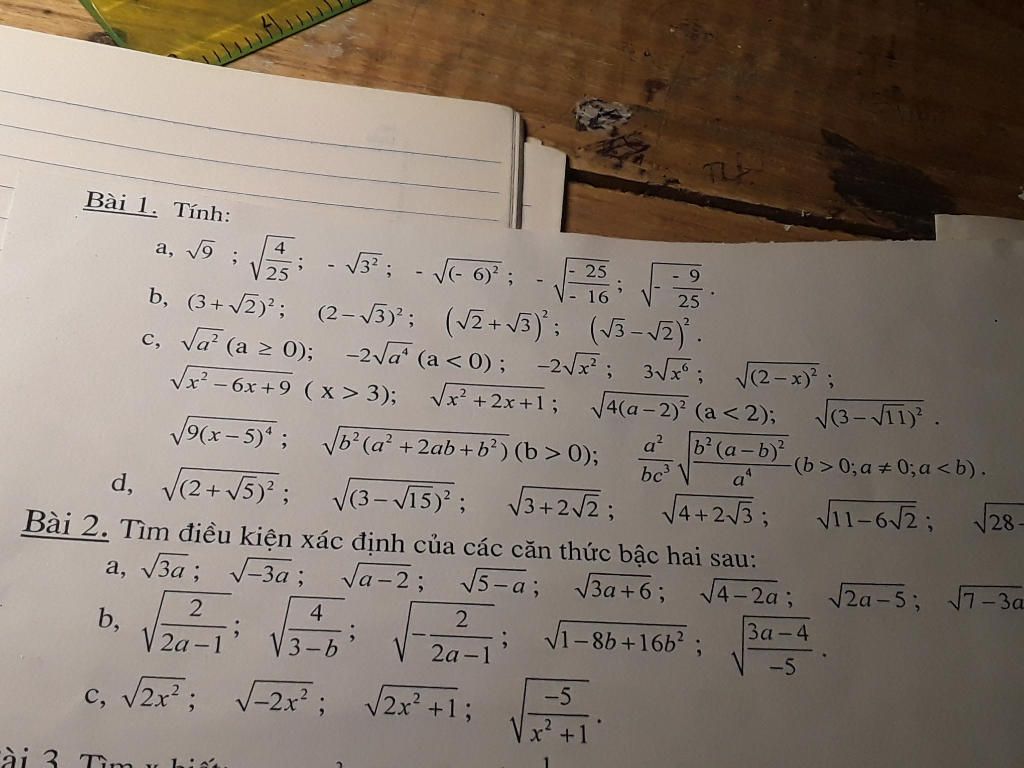 Bài 1. Tính:
a, √9 ; √(4/25); - √(3²) ; - √((- 6)²) ; - √(- 25/- 16) ; √(- - 9/25) .
b, (3 + √2)² ; (2 − √3)² ; (√2 + √3)² ; (√3 − √2)² .
c, √(a²) (a ≥ 0); −2√(a⁴) (a < 0) ; −2√(x²) ; 3√(x⁶) ; √((2 − x)²) ;
√(x² − 6x + 9) ( x > 3); √(x² + 2x + 1) ; √(4(a − 2)²) (a < 2); √((3 − √11)²) .
√(9(x − 5)⁴) ; √(b²(a² + 2ab + b²)) (b > 0); a²/bc³ √(b²(a − b)²/a⁴) (b > 0; a ≠ 0; a < b) .
d, √((2 + √5)²) ; √((3 − √15)²) ; √(3 + 2√2) ; √(4 + 2√3) ; √(11 − 6√2) ; √(28 -
Bài 2. Tìm điều kiện xác định của các căn thức bậc hai sau:
a, √(3a) ; √(−3a) ; √(a − 2) ; √(5 − a) ; √(3a + 6) ; √(4 − 2a) ; √(2a − 5) ; √(7 − 3a
b, √(2/(2a − 1)) ; √(4/(3 − b)) ; √(−2/(2a − 1)) ; √(1 − 8b + 16b²) ; √((3a − 4)/−5) .
c, √(2x²) ; √(−2x²) ; √(2x² + 1) ; √(−5/(x² + 1)) .
ài 3. Tìm x biết: